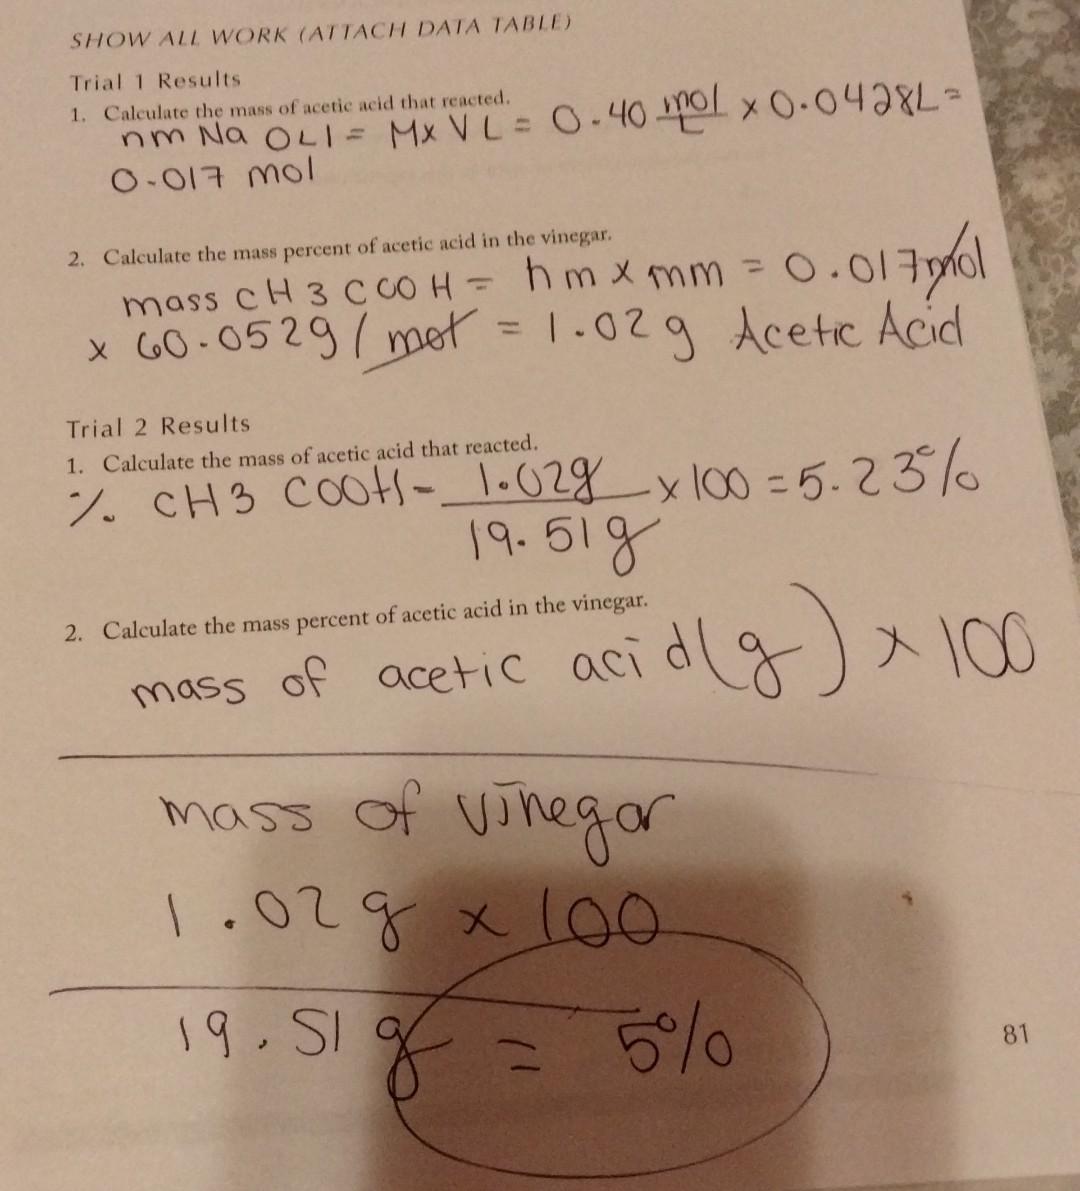 SHOW ALL WORK (ATTACH DATA TABLE)
Trial 1 Results
1. Calculate the mass of acetic acid that reacted.
nm Na OLI = Mx VL = 0.40 mol/L x 0.0428L =
0.017 mol
2. Calculate the mass percent of acetic acid in the vinegar.
mass CH3COOH = hm x mm = 0.017 mol
x 60.0529/mol = 1.02g Acetic Acid
Trial 2 Results
1. Calculate the mass of acetic acid that reacted.
% CH3 COOH - 1.02g x 100 = 5.23%
19.51g
2. Calculate the mass percent of acetic acid in the vinegar.
mass of acetic acid (g) x 100
mass of vinegar
1.02g x 100
19.51 g = 5%
81